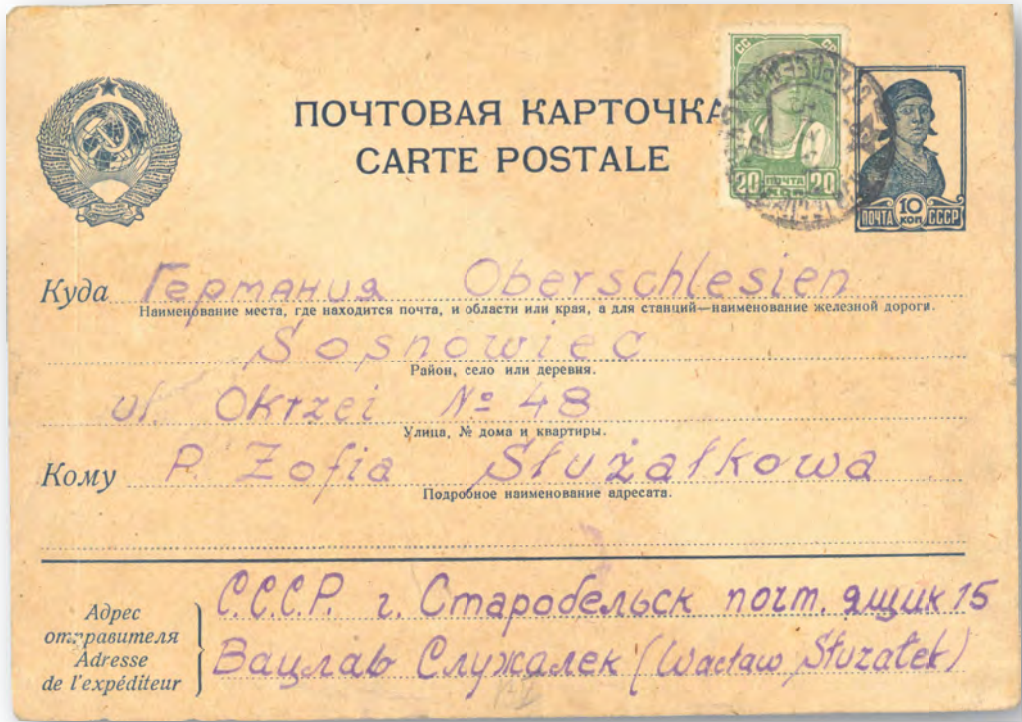 ПОЧТОВАЯ КАРТОЧКА
CARTE POSTALE
СС СР
20 ПОЧТА 20
ПОЧТА 10 КОП СССР
Куда Германия Oberschlesien
Наименование места, где находится почта, и области или края, а для станций—наименование железной дороги.
Sosnowiec
Район, село или деревня.
ul. Okrzei № 48
Улица, № дома и квартиры.
Кому P. Zofia Służałkowa
Подробное наименование адресата.
Адрес отправителя
Adresse de l'expéditeur
С.С.С.Р. г. Старобельск почт. ящик 15
Вацлав Служалек (Wacław Służałek)